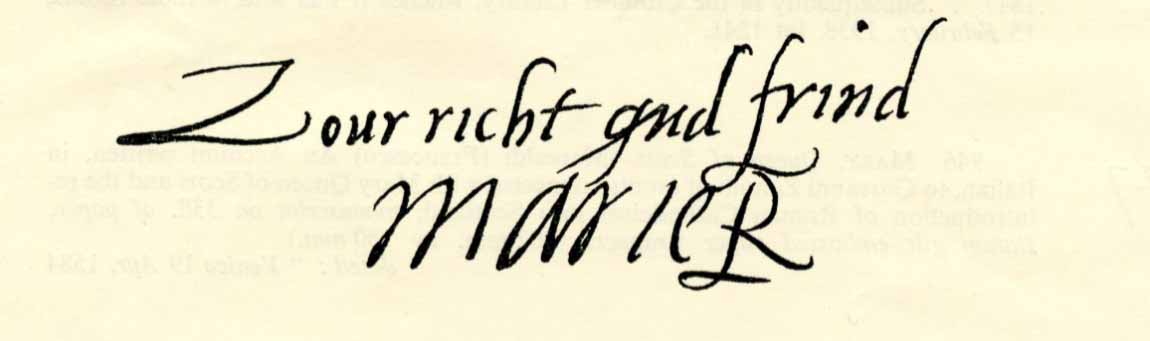 Zour richt gud frind
Marie R